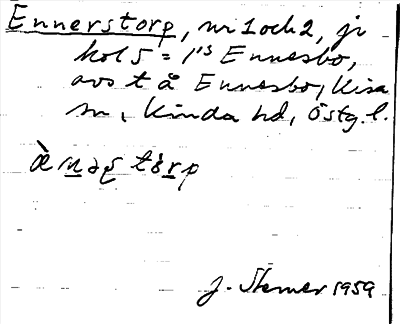 Ennerstorp, nr 1 och 2, jr
kol 5 = 1's Ennesbo,
avs t å Ennesbo, Kisa
sn, Kinda hd, Östg. l.
J. Stemer 1959